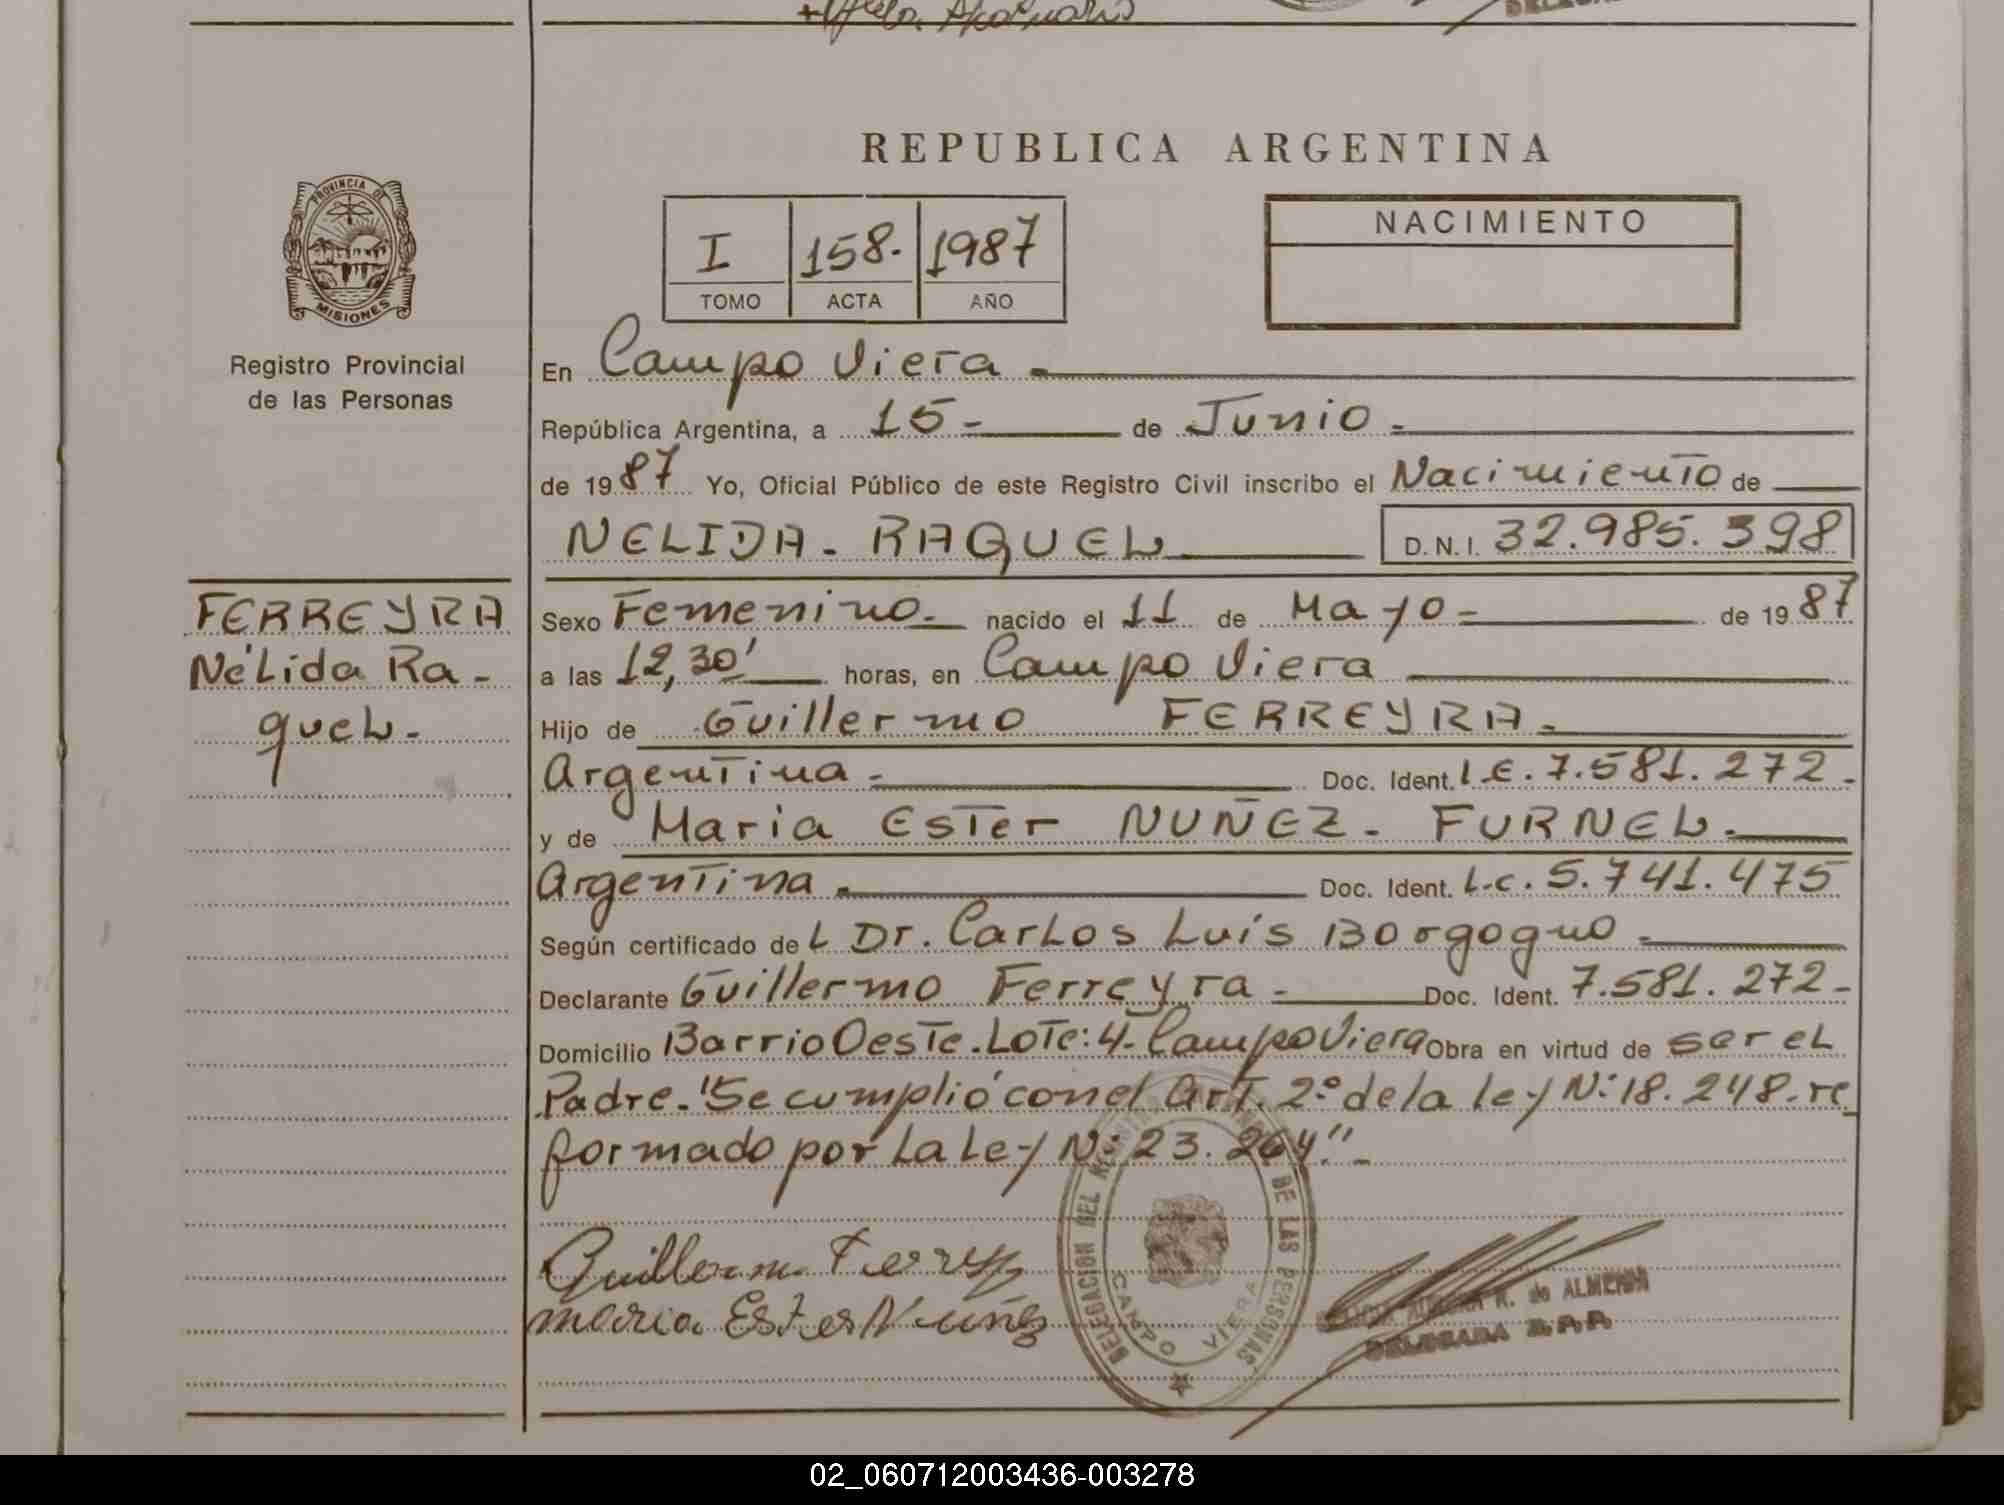 REPUBLICA ARGENTINA
PROVINCIA DE
MISIONES
Registro Provincial
de las Personas
I 158.- 1987
TOMO ACTA AÑO
NACIMIENTO
En Campo Viera.
República Argentina, a 15- de Junio.-
de 1987 Yo, Oficial Público de este Registro Civil inscribo el Nacimiento de
NELIDA- RAQUEL D.N.I. 32.985.398
FERREYRA
Nélida Ra-
quel.-
Sexo Femenino.- nacido el 11 de Mayo- de 1987
a las 12,30' horas, en Campo Viera
Hijo de Guillermo FERREYRA.-
Argentina- Doc. Ident. L.E. 7.581.272-
y de Maria Ester NUÑEZ- FURNEL.-
Argentina.- Doc. Ident. L.C. 5.741.475
Según certificado del Dr. Carlos Luis Borgogno.-
Declarante Guillermo Ferreyra.- Doc. Ident. 7.581.272-
Domicilio Barrio Oeste.Lote:4-Campo Viera Obra en virtud de ser el
Padre.-"Se cumplió con el Art. 2° de la ley N: 18.248-re
formado por la Ley N: 23.264".-
Guillermo Ferrey
maria Ester Nuñez
DELEGACION DEL DE LAS PERSONAS
CAMPO VIERA
R. de ALMEIDA
DELEGADA R.P.P.
02_060712003436-003278